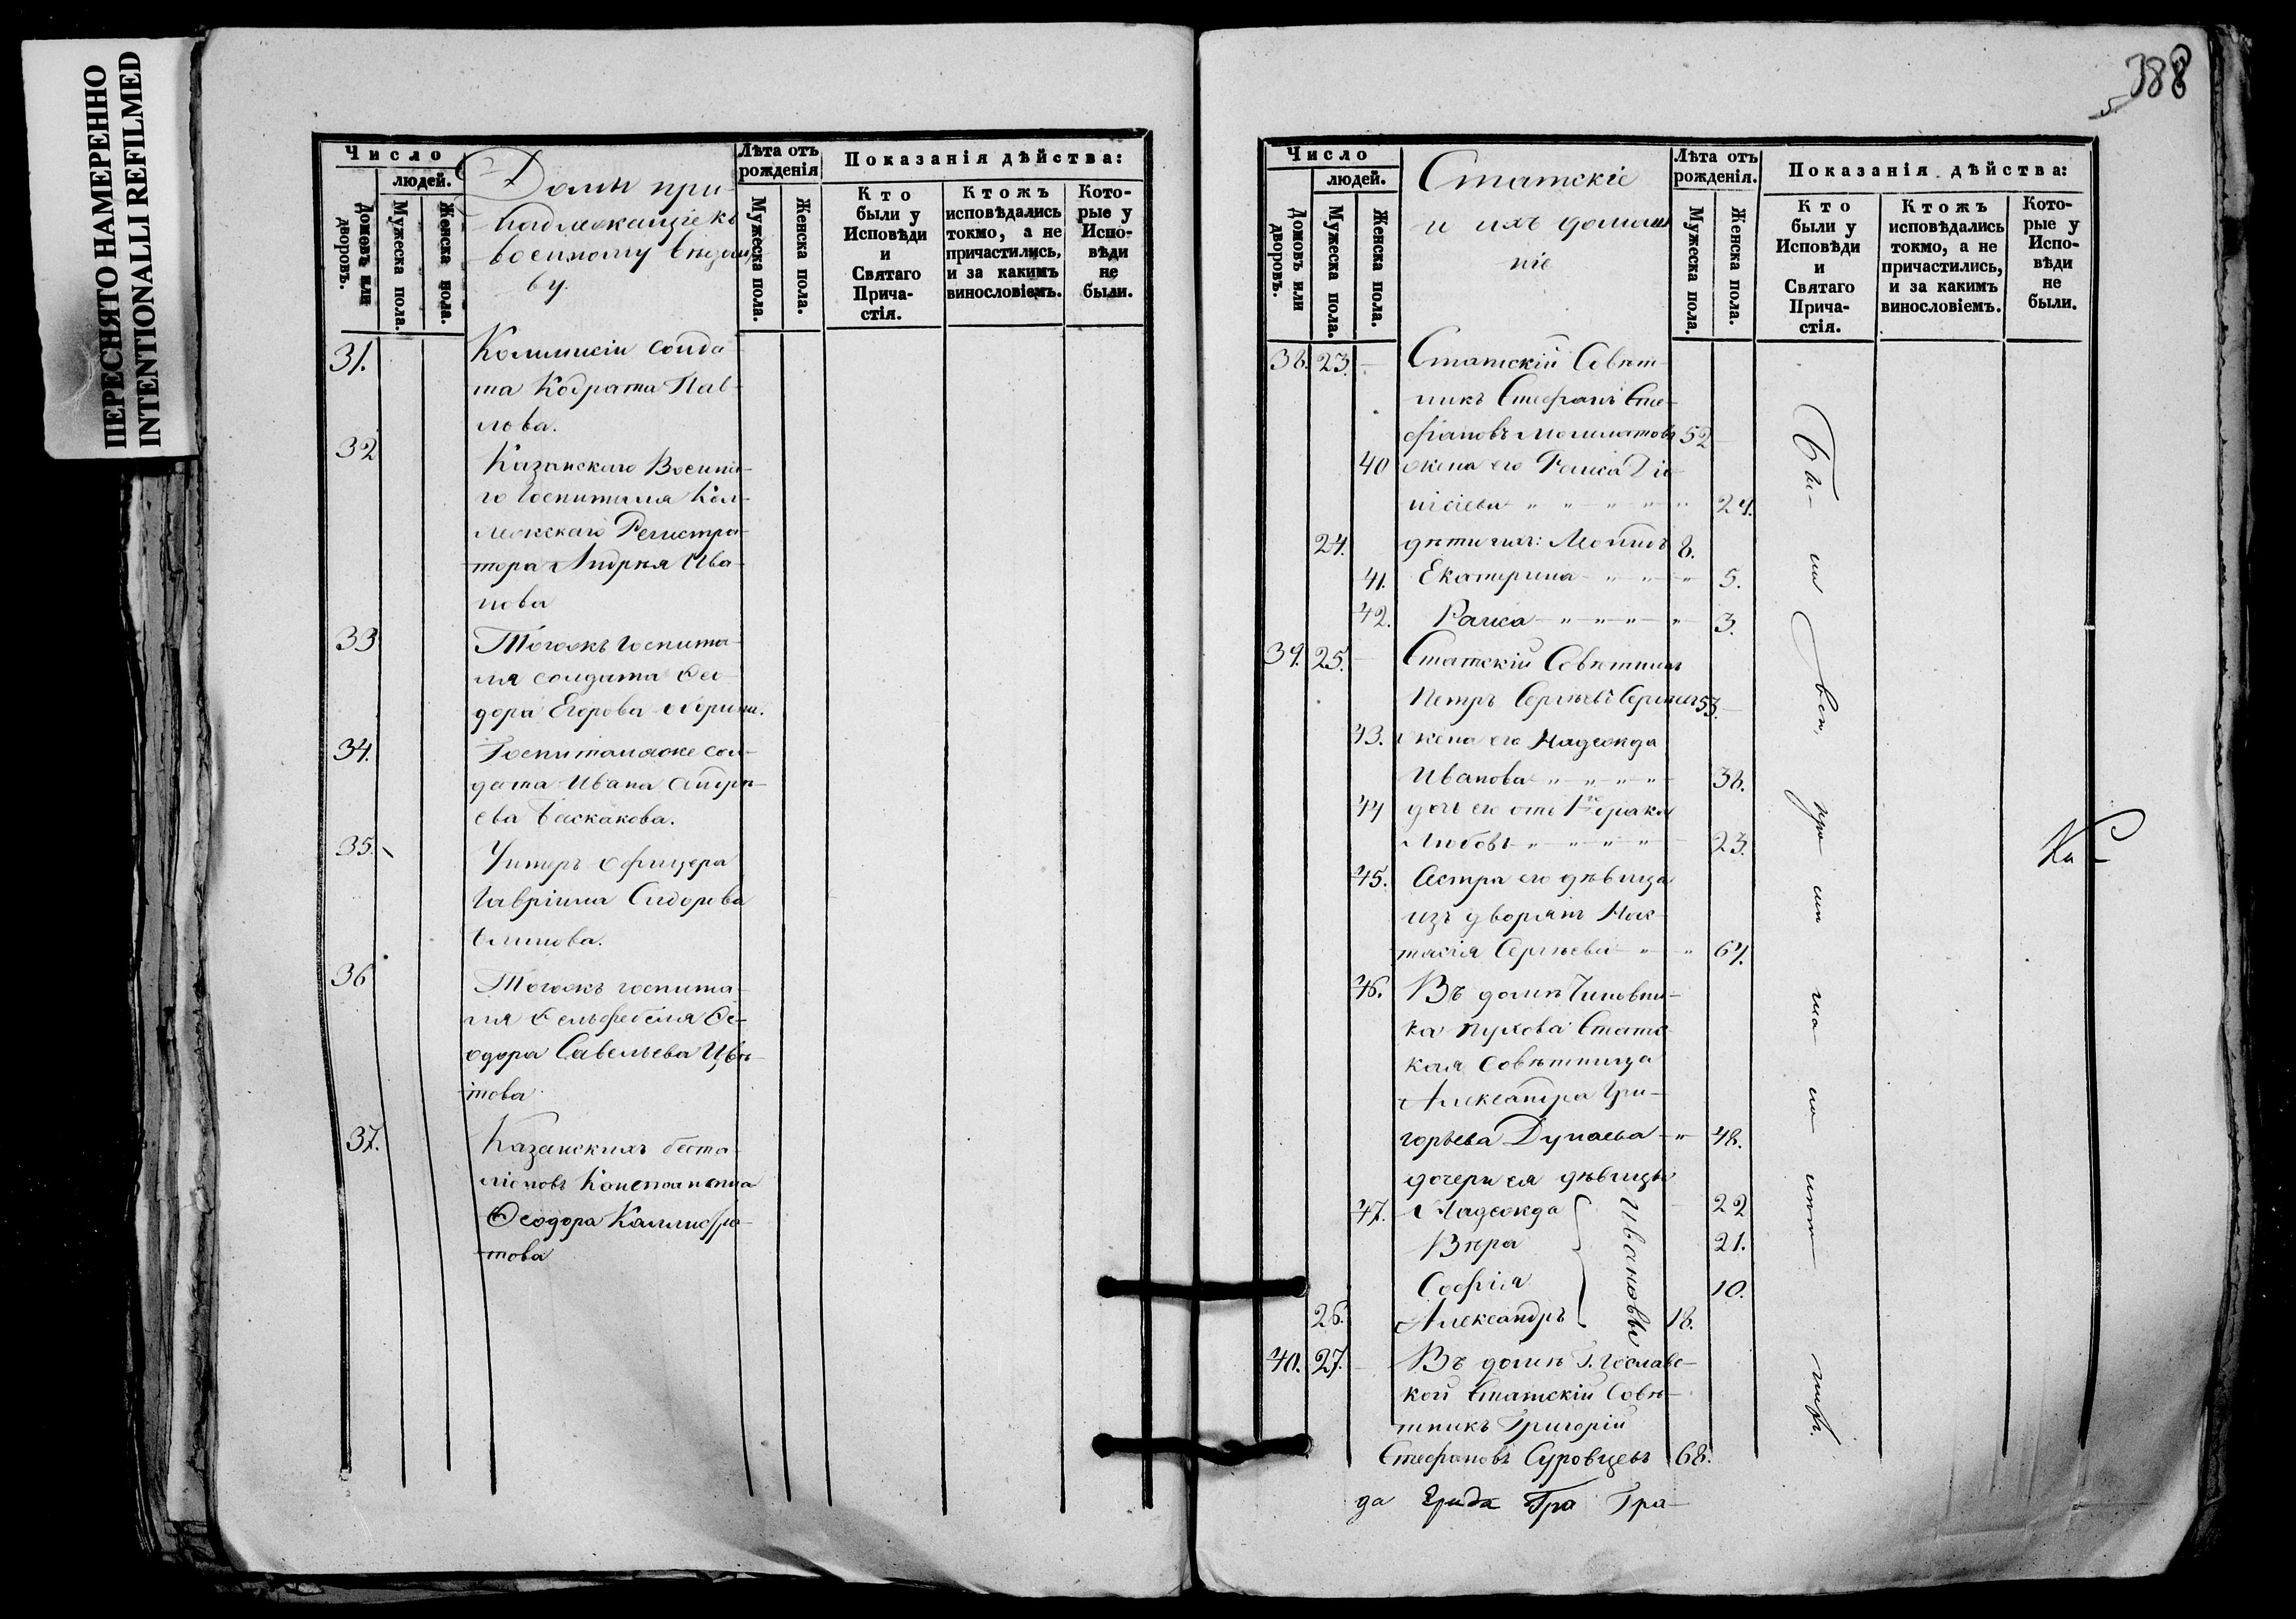 ПЕРЕСНЯТО НАМЕРЕННО
INTENTIONALLI REFILMED
Число
людей.
Домовъ или дворовъ.
Мужеска пола.
Женска пола.
Домы при
надлежащіе къ
военному
ву.
Лѣта отъ рожденія
Мужеска пола.
Женска пола.
Показанія дѣйства:
Кто были у Исповѣди и Святаго Прича-стія.
Ктожъ исповѣдались токмо, а не причастились, и за какимъ винословіемъ.
Кото-рые у Испо-вѣди не были.
31. солда
та Кодрата Пав-
лова.
32 Казанскаго Воен
го Госпиталя Кол-
лежскаго Регистра-
тора Андрея Ива-
нова
33 Тогожъ Госпита-
ля солдата Ѳео
дора Егорова
34. Госпиталя же сол-
дата Ивана Андре-
ева Баскакова.
35. Унтеръ Офицера
Гавріила Сидорова
36 Тогожъ госпита-
ля Фельдфебеля Ѳе-
одора Савельева Цвѣ-
това
37. Казанскихъ бата-
ліоновъ
Ѳеодора Каллистра-
това
388
Число
людей.
Домовъ или дворовъ.
Мужеска пола.
Женска пола.
Статскіе
и ихъ домаш
ніе
Лѣта отъ рожденія.
Мужеска пола.
Женска пола.
Показанія дѣйства:
Кто были у Исповѣди и Святаго Прича-стія.
Ктожъ исповѣдались токмо, а не причастились, и за какимъ винословіемъ.
Кото-рые у Испо-вѣди не были.
38. 23. Статскій Совѣт-
никъ Стефанъ Сте-
фановъ 52
40 жена его Раиса Діо-
нисіева 24.
24. дѣти ихъ: 8.
41. Екатерина 5.
42. Раиса 3.
39. 25. Статскій Совѣтникъ
Петръ Сергѣевъ 53.
43. жена его Надежда
Иванова 38.
44 дочь его отъ 1го брака
Любовь 23.
45. Сестра его дѣвица
изъ дворянъ Нас-
тасія Сергѣева 64.
46. Въ домѣ Чиновни-
ка Пухова Статс
кая Совѣтница
Александра Гри-
горьева Дунаева 48.
дочери ея дѣвицы
47. Надежда 22
Вѣра 21.
Софія 10.
26. Александръ 18.
Ивановы
40. 27. Въ домѣ Г.
кой Статскій Совѣ-
тникъ Григорій
Стефановъ Суровцевъ 68.
да Гра Гра-